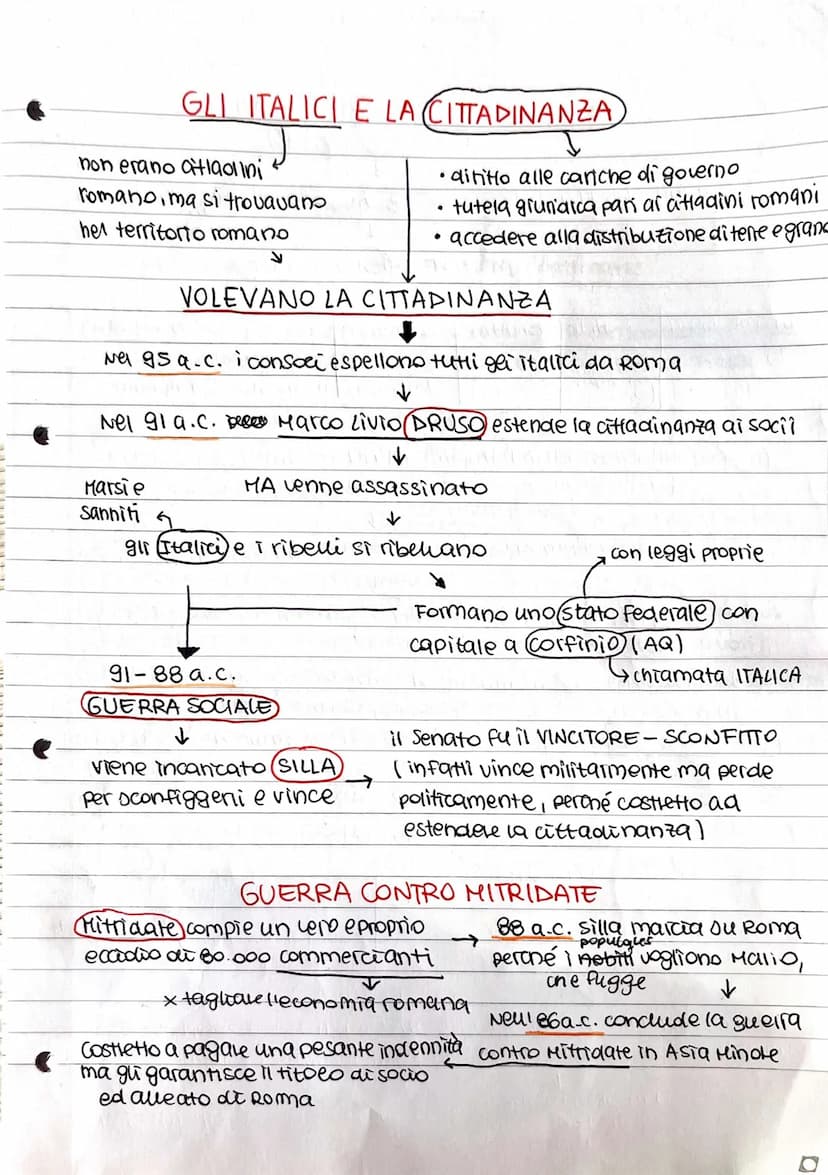 GLI ITALICI E LA CITTADINANZA
non erano cittadini
romano, ma si trovavano
nel territorio romano
• diritto alle cariche di governo
• tutela giuridica pari ai cittadini romani
• accedere alla distribuzione di terre e grano
VOLEVANO LA CITTADINANZA
Nel 95 a.c. i consoli espellono tutti gli italici da Roma
Nel 91 a.c. Marco Livio DRUSO estende la cittadinanza ai socii
MA venne assassinato
Marsi e
Sanniti
gli Italici e i ribelli si ribellano
con leggi proprie
Formano uno stato federale con
capitale a Corfinio (AQ)
chiamata ITALICA
91-88 a.c.
GUERRA SOCIALE
viene incaricato SILLA
per sconfiggerli e vince
il Senato fu il VINCITORE - SCONFITTO
(infatti vince militarmente ma perde
politicamente, perché costretto ad
estendere la cittadinanza)
GUERRA CONTRO MITRIDATE
Mitridate compie un vero e proprio
eccidio di 80.000 commercianti
x tagliare l'economia romana
88 a.c. Silla marcia su Roma
populares
perché i nobili vogliono Mario,
che fugge
Nell'86 a.c. conclude la guerra
contro Mitridate in Asia Minore
Costretto a pagare una pesante indennità
ma gli garantisce il titolo di socio
ed alleato di Roma